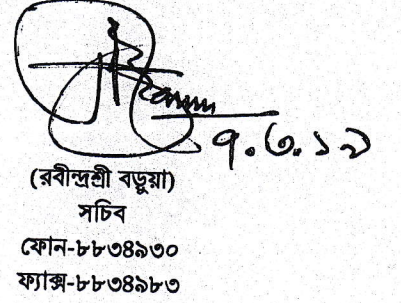 ৭.৩.১৯
(রবীন্দ্রশ্রী বড়ুয়া)
সচিব
ফোন-৮৮৩৪৯৩০
ফ্যাক্স-৮৮৩৪৯৮৩